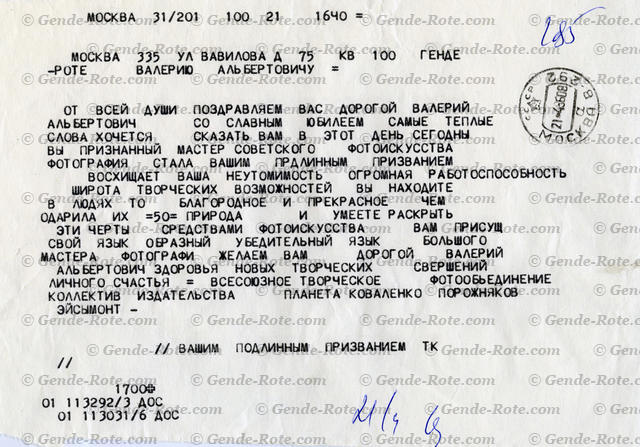 МОСКВА 31/201 100 21 1640 =
МОСКВА 335 УЛ ВАВИЛОВА Д 75 КВ 100 ГЕНДЕ
-РОТЕ ВАЛЕРИЮ АЛЬБЕРТОВИЧУ =
285
ОТ ВСЕЙ ДУШИ ПОЗДРАВЛЯЕМ ВАС ДОРОГОЙ ВАЛЕРИЙ
АЛЬБЕРТОВИЧ СО СЛАВНЫМ ЮБИЛЕЕМ САМЫЕ ТЕПЛЫЕ
СЛОВА ХОЧЕТСЯ СКАЗАТЬ ВАМ В ЭТОТ ДЕНЬ СЕГОДНЫ
ВЫ ПРИЗНАННЫЙ МАСТЕР СОВЕТСКОГО ФОТОИСКУССТВА
ФОТОГРАФИЯ СТАЛА ВАШИМ ПРДЛИННЫМ ПРИЗВАНИЕМ
ВОСХИЩАЕТ ВАША НЕУТОМИМОСТЬ ОГРОМНАЯ РАБОТОСПОСОБНОСТЬ
ШИРОТА ТВОРЧЕСКИХ ВОЗМОЖНОСТЕЙ ВЫ НАХОДИТЕ
В ЛЮДЯХ ТО БЛАГОРОДНОЕ И ПРЕКРАСНОЕ ЧЕМ
ОДАРИЛА ИХ =50= ПРИРОДА И УМЕЕТЕ РАСКРЫТЬ
ЭТИ ЧЕРТЫ СРЕДСТВАМИ ФОТОИСКУССТВА ВАМ ПРИСУЩ
СВОЙ ЯЗЫК ОБРАЗНЫЙ УБЕДИТЕЛЬНЫЙ ЯЗЫК БОЛЬШОГО
МАСТЕРА ФОТОГРАФИ ЖЕЛАЕМ ВАМ ДОРОГОЙ ВАЛЕРИЙ
АЛЬБЕРТОВИЧ ЗДОРОВЬЯ НОВЫХ ТВОРЧЕСКИХ СВЕРШЕНИЙ
ЛИЧНОГО СЧАСТЬЯ = ВСЕСОЮЗНОЕ ТВОРЧЕСКОЕ ФОТООБЬЕДИНЕНИЕ
КОЛЛЕКТИВ ИЗДАТЕЛЬСТВА ПЛАНЕТА КОВАЛЕНКО ПОРОЖНЯКОВ
ЭЙСЫМОНТ -
// ВАШИМ ПОДЛИННЫМ ПРИЗВАНИЕМ ТК
//
1700Ф
01 113292/3 ДОС
01 113031/6 ДОС
МОСКВА
© Gende-Rote.com